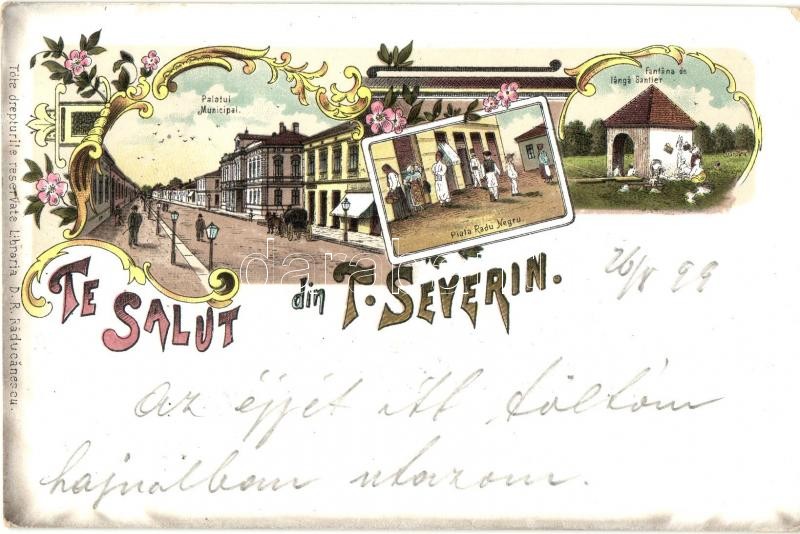 Palatul
Municipal.
Fantâna de
lângă Santier
Piata Radu Negru
TE SALUT din T. SEVERIN.
Tóte drepturile reservate Libraria D. R. Răducănescu.
26/V 99
Az éjjét itt töltöm
hajnalban utazom.
darabanth